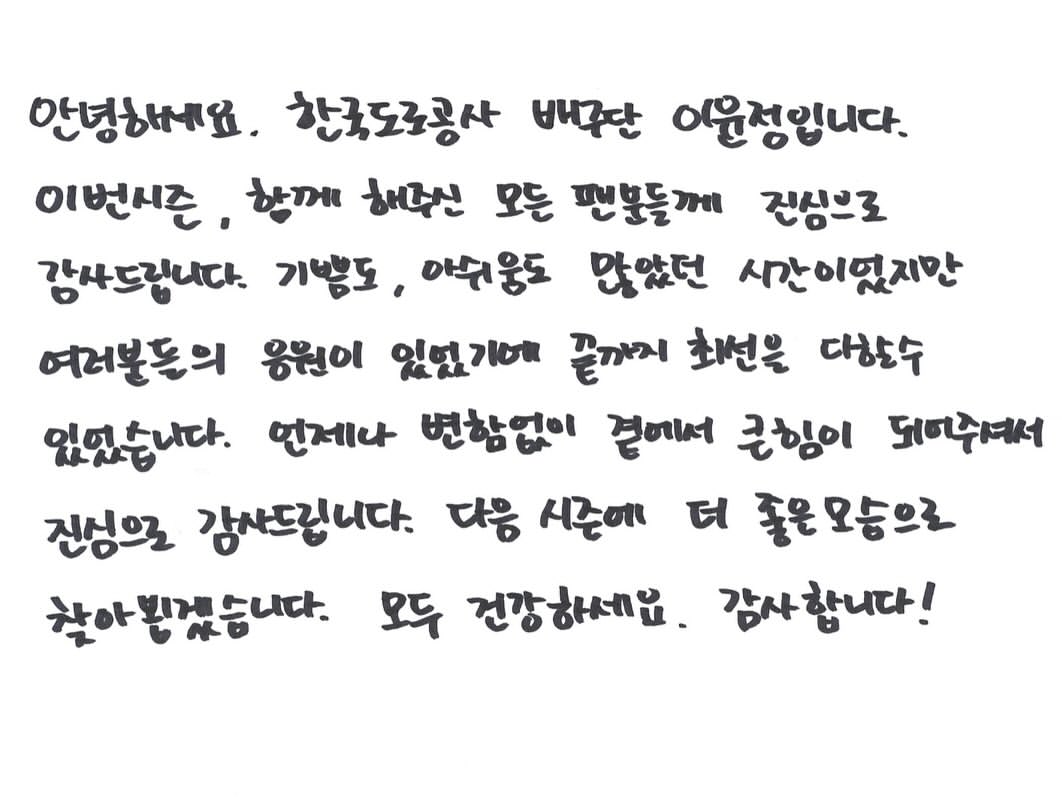 안녕하세요. 한국도로공사 배구단 이윤정입니다.
이번시즌, 함께 해주신 모든 팬분들께 진심으로
감사드립니다. 기쁨도, 아쉬움도 많았던 시간이었지만
여러분들의 응원이 있었기에 끝까지 최선을 다할수
있었습니다. 언제나 변함없이 곁에서 큰힘이 되어주셔서
진심으로 감사드립니다. 다음 시즌에 더 좋은모습으로
찾아뵙겠습니다. 모두 건강하세요. 감사합니다!